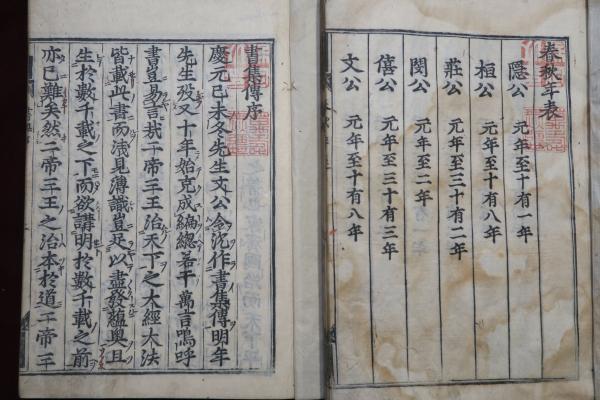 春秋年表
隱公 元年至十有一年
桓公 元年至十有八年
莊公 元年至三十有二年
閔公 元年至二年
僖公 元年至三十有三年
文公 元年至十有八年
書集傳序
慶元己未冬先生文公令沈作書集傳明年
先生歿又十年始克成編總若干萬言嗚呼
書豈易言哉二帝三王治天下之大經大法
皆載此書而淺見薄識豈足以盡發蘊奧且
生於數千載之下而欲講明於數千載之前
亦已難矣然二帝三王之治本於道二帝三